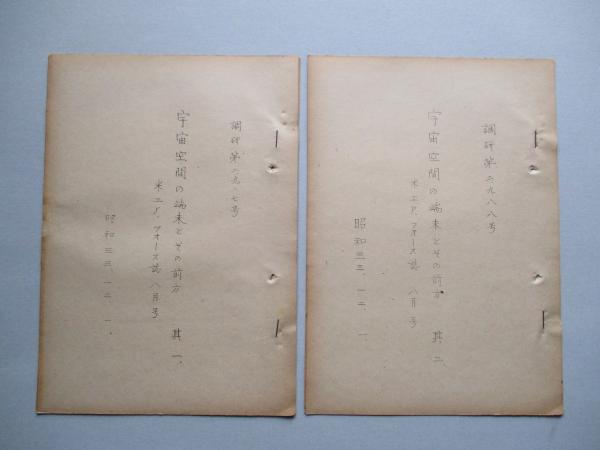 調研第二九八七号
宇宙空間の端末とその前方　其一、
米エア、フォース誌　八月号
昭和三三、一二、一、
調研第二九八八号
宇宙空間の端末とその前方　其、二
米エア、フォース誌　八月号
昭和三三、一二、一